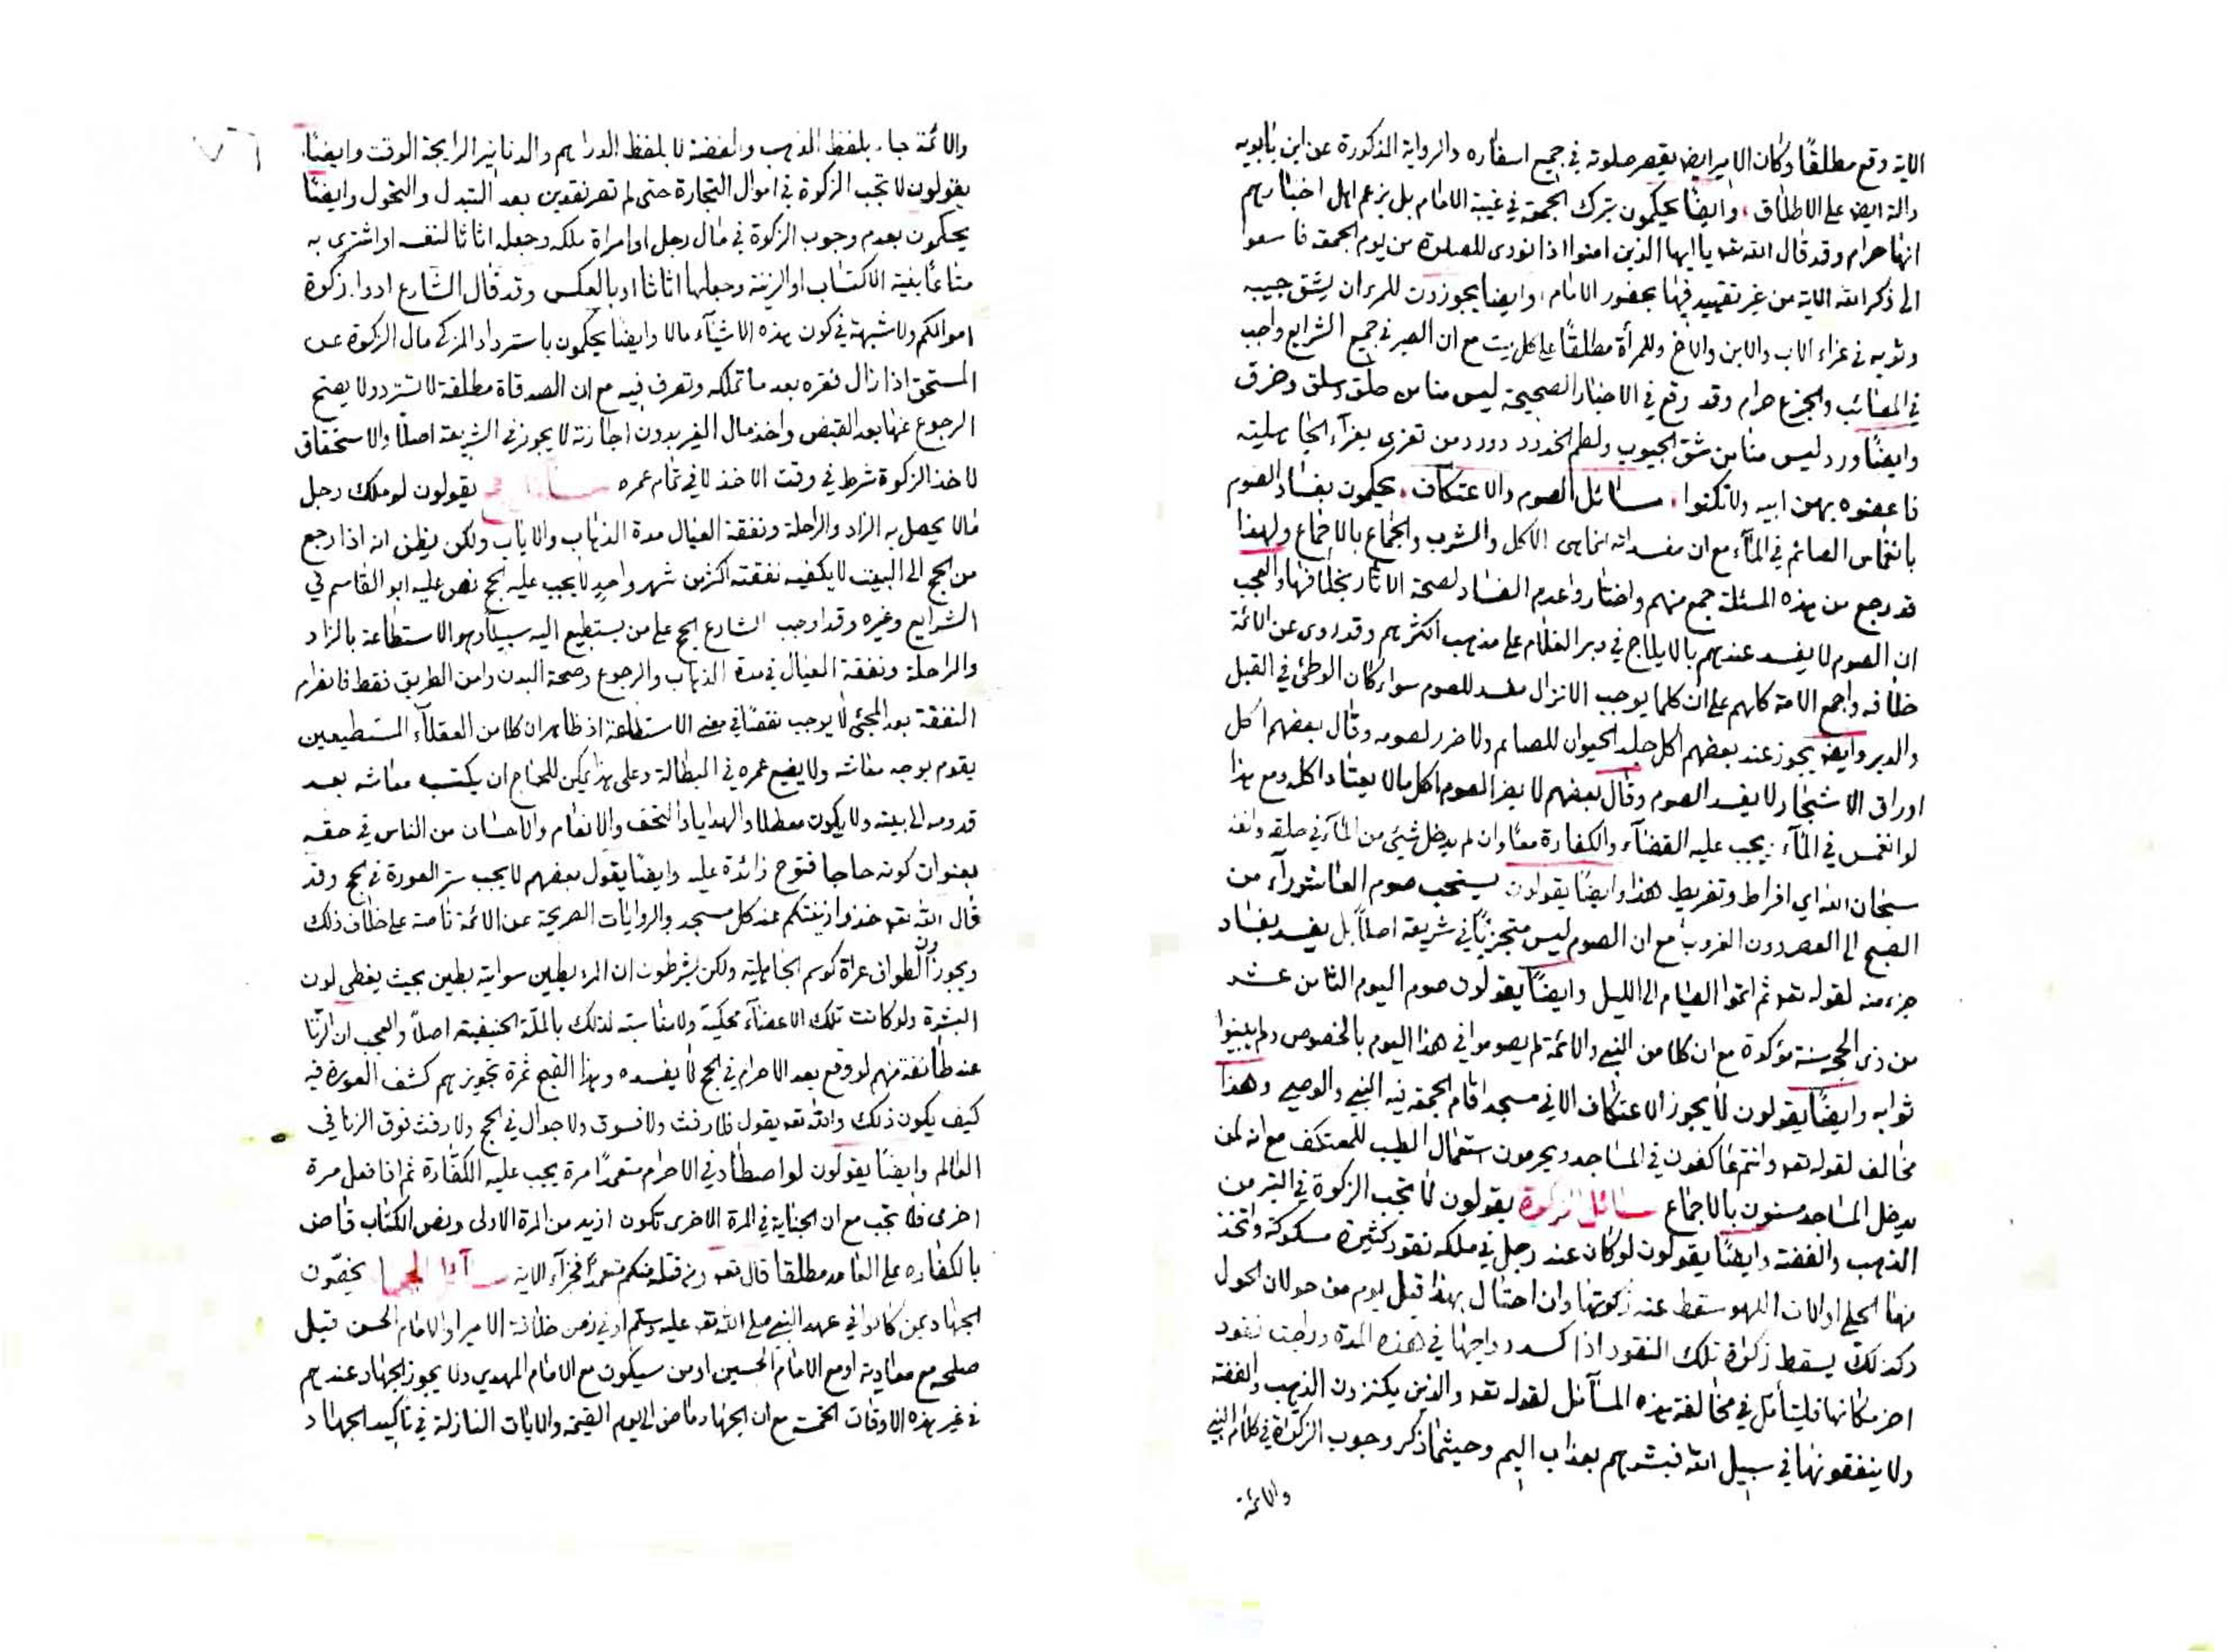 الاية وقع مطلقًا وكان الامير ايضا يقصر صلوته في جميع اسفاره والرواية المذكورة عن ابن بابويه
دالة ايضا على الاطلاق، وايضًا يحكمون بترك الجمعة في غيبة الامام بل يزعم اهل اخبارهم
انها حرام وقد قال الله تعه يا ايها الذين امنوا اذا نودى للصلوة من يوم الجمعة فاسعوا
الى ذكر الله الاية من غير تقييد فيها بحضور الامام، وايضا يجوزون للمرء ان يشق جيبه
وثوبه في عزاء الاب والابن والاخ وللمرأة مطلقًا على كل ميت مع ان الصبر في جميع الشرايع واجب
في المصائب والجزع حرام وقد وقع في الاخبار الصحيحة ليس منا من حلق وسلق وخرق
وايضًا ورد ليس منا من شق الجيوب ولطم الخدود وورد من تعزى بعزآء الجاهلية
فاعضوه بهن ابيه ولا تكنوا، مسائل الصوم والاعتكاف، يحكمون بفساد الصوم
بانغماس الصائم في المآء مع ان مفسداته انما هى الاكل والشرب والجماع بالاجماع ولهذا
قد رجع من هذه المسئلة جمع منهم واختاروا عدم الفساد لصحة الاثار بخلافها والعجب
ان الصوم لا يفسد عندهم بالايلاج في دبر الغلام على مذهب اكثرهم وقد روى عن الائمة
خلافه واجمع الامة كلهم على ان كلما يوجب الانزال مفسد للصوم سواء كان الوطئ في القبل
والدبر وايضا يجوز عند بعضهم اكل جلد الحيوان للصائم ولا ضرر لصومه وقال بعضهم اكل
اوراق الاشجار لا يفسد الصوم وقال بعضهم لا يضر الصوم اكل مالا يعتاد اكله ومع هذا
لو انغمس في المآء يجب عليه القضآء والكفارة معًا وان لم يدخل شيئ من المآء في حلقه وانفه
سبحان الله اي افراط وتفريط هذا وايضًا يقولون يستحب صوم العاشورآء من
الصبح الى العصر دون الغروب مع ان الصوم ليس متجزيًا في شريعة اصلاً بل يفسد بفساد
جزء منه لقوله تعه ثم اتموا الصيام الى الليل وايضًا يقولون صوم اليوم الثامن عشر
من ذى الحجة سنة مؤكدة مع ان كلا من النبي والائمة لم يصوموا في هذا اليوم بالخصوص ولم يبينوا
ثوابه وايضًا يقولون لا يجوز الاعتكاف الا في مسجد اقام الجمعة فيه النبي والوصي وهذا
مخالف لقوله تعه وانتم عاكفون في المساجد ويحرمون استعمال الطيب للمعتكف مع انه لمن
يدخل المساجد مسنون بالاجماع مسائل الزكوة يقولون لا تجب الزكوة في التبر من
الذهب والفضة وايضًا يقولون لو كان عند رجل في ملكه نقود كثيرة مسكوكة واتخذ
منها الحلي اوالات اللهو سقط عنه زكوتها وان احتال بهذا قبل يوم من حولان الحول
وكذلك يسقط زكوة تلك النقود اذا كسد رواجها في هذه المدة وراجت نقود
اخر مكانها فليتأمل في مخالفة هذه المسآئل لقوله تعه والذين يكنزون الذهب والفضة
ولا ينفقونها في سبيل الله فبشرهم بعذاب اليم وحيثما ذكر وجوب الزكوة في كلام النبي
والائمة
والائمة جاء بلفظ الذهب والفضة لا بلفظ الدراهم والدنانير الرايجة الوقت وايضًا
يقولون لا تجب الزكوة في اموال التجارة حتى لم تصر نقدين بعد التبدل والتحول وايضًا
يحكمون بعدم وجوب الزكوة في مال رجل او امراة ملكه وجعله اثاثا لنفسه او اشترى به
متاعًا بغية الاكتساب او الزينة وجعلها اثاثا او بالعكس وقد قال الشارع ادوا زكوة
اموالكم ولا شبهة في كون هذه الاشيآء مالا وايضًا يحكمون باسترداد المزكى مال الزكوة عن
المستحق اذا زال فقره بعد ما تملكه وتصرف فيه مع ان الصدقاة مطلقة لا تسترد ولا يصح
الرجوع عنها بعد القبض واخذ مال الغير بدون اجازته لا يجوز في الشريعة اصلا والاستحقاق
لاخذ الزكوة شرط في وقت الاخذ لا في تمام عمره يقولون لو ملك رجل
مالا يحصل به الزاد والراحلة ونفقة العيال مدة الذهاب والاياب ولكن يظن انه اذا رجع
من الحج الى البيت لا يكفيه نفقته اكثر من شهر واحدٍ لا يجب عليه الحج نص عليه ابو القاسم في
الشرايع وغيره وقد اوجب الشارع الحج على من يستطيع اليه سبيلاً وهو الاستطاعة بالزاد
والراحلة ونفقة العيال في مدة الذهاب والرجوع وصحة البدن وامن الطريق فقط فانفرام
النفقة بعد المجئ لا يوجب نقصًا في معنى الاستطاعة اذ ظاهر ان كلا من العقلآء المستطيعين
يقوم بوجه معاشه ولا يضيع عمره في البطالة وعلى هذا يمكن للحاج ان يكتسب معاشه بعد
قدومه الى بيته ولا يكون معطلا والهدايا والتحف والانعام والاحسان من الناس في حقه
بعنوان كونه حاجا فتوح زائدة عليه وايضًا يقول بعضهم لا يجب ستر العورة في الحج وقد
قال الله تعه خذوا زينتكم عند كل مسجد والروايات الصريحة عن الائمة ناصة على خلاف ذلك
ويجوزون الطواف عراة كرسم الجاهلية ولكن يشرطون ان المرء يطين سواية بطين بحيث يغطى لون
البشرة ولو كانت تلك الاعضآء محكية ولا مناسبة لذلك بالملة الحنيفية اصلاً والعجب ان الزنا
عند طائفة منهم لو وقع بعد الاحرام في الحج لا يفسده وهذا القبح ثمرة تجويزهم كشف العورة فيه
كيف يكون ذلك والله تعه يقول فلا رفث ولا فسوق ولا جدال في الحج ولا رفث فوق الزنا في
العالم وايضًا يقولون لو اصطاد في الاحرام متعمدًا مرة يجب عليه الكفّارة ثم اذا فعل مرة
اخرى فلا تجب مع ان الجناية في المرة الاخرى تكون ازيد من المرة الاولى ونص الكتاب قاض
بالكفاره على العامد مطلقا قال تعه ومن قتله منكم متعمدًا فجزآء الاية مسآئل الجهاد يخصّون
الجهاد بمن كانوا في عهد النبي صلى الله تعه عليه وسلم او في زمن خلافة الامير او الامام الحسن قبل
صلحه مع معاوية او مع الامام الحسين او من سيكون مع الامام المهدي ولا يجوز الجهاد عندهم
في غير هذه الاوقات الخمسة مع ان الجهاد ماض الى يوم القيمة والايات النازلة في تأكيد الجهاد